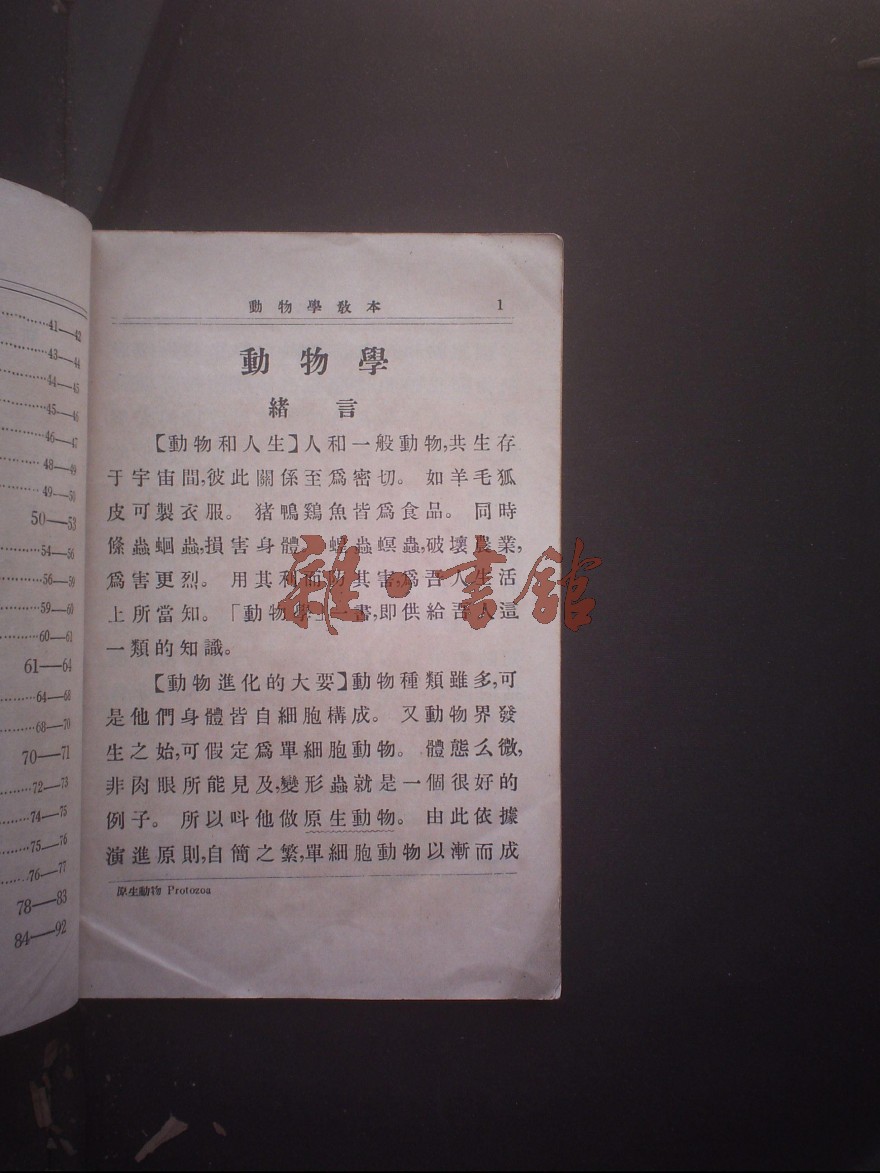 41—42
43—44
44—45
45—46
46—47
48—49
49—50
50—53
54—56
56—59
59—60
60—61
61—64
64—68
68—70
70—71
72—73
74—75
75—76
76—77
78—83
84—92
動物學教本 1
動物學
緒言
【動物和人生】人和一般動物,共生存
于宇宙間,彼此關係至爲密切。如羊毛狐
皮可製衣服。猪鴨鷄魚皆爲食品。同時
條蟲蛔蟲,損害身體。蝗蟲螟蟲,破壞農業,
爲害更烈。用其利而防其害,爲吾人生活
上所當知。「動物學」一書,即供給吾人這
一類的知識。
【動物進化的大要】動物種類雖多,可
是他們身體皆自細胞構成。又動物界發
生之始,可假定爲單細胞動物。體態么微,
非肉眼所能見及,變形蟲就是一個很好的
例子。所以呌他做原生動物。由此依據
演進原則,自簡之繁,單細胞動物以漸而成
原生動物 Protozoa
雜·書館